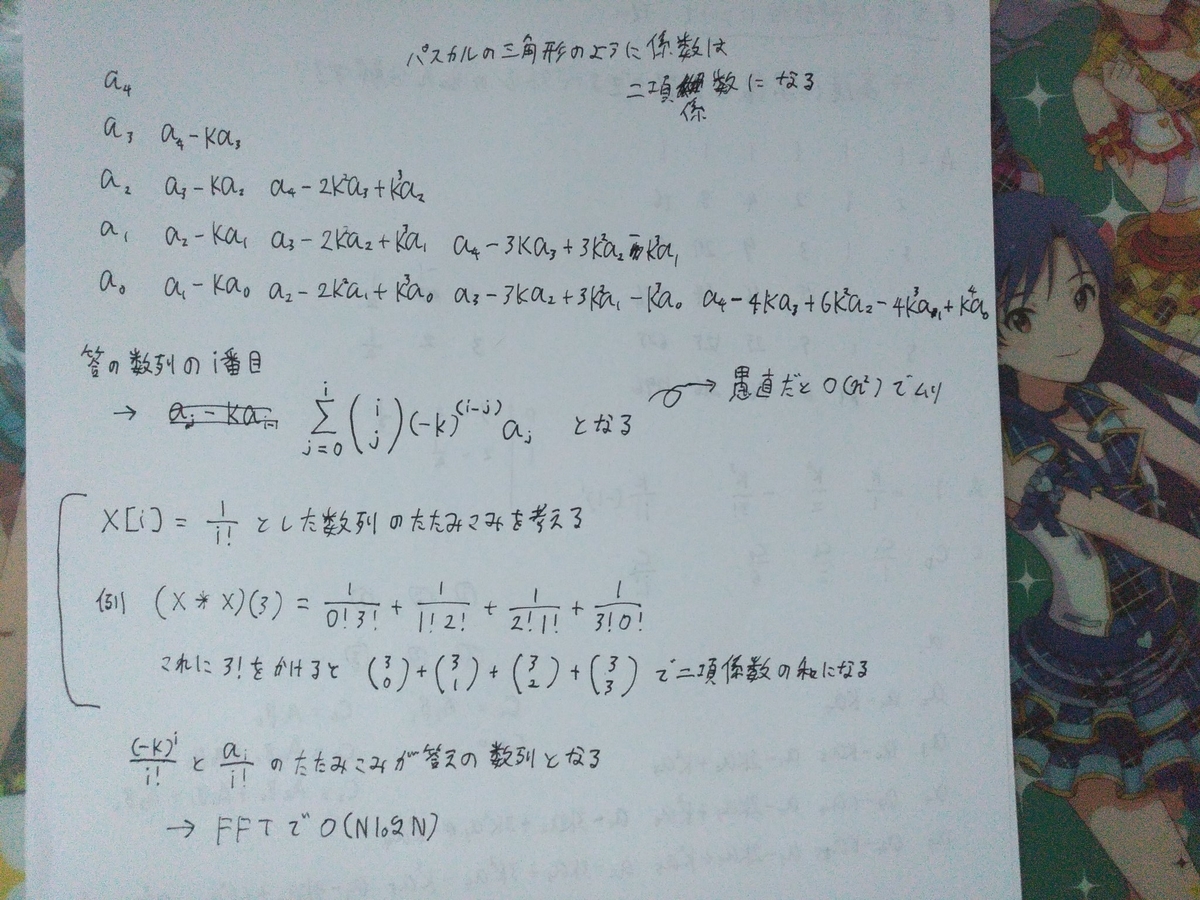 パスカルの三角形のように係数は
二項係数になる
a₄
a₃ a₄-Ka₃
a₂ a₃-Ka₂ a₄-2K²a₃+K³a₂
a₁ a₂-Ka₁ a₃-2K²a₂+K³a₁ a₄-3Ka₃+3K²a₂-K³a₁
a₀ a₁-Ka₀ a₂-2K²a₁+K³a₀ a₃-3Ka₂+3K²a₁-K³a₀ a₄-4Ka₃+6K²a₂-4K³a₁+K⁴a₀
答の数列のi番目
→ Σ_{j=0}^{i} (i j)(-k)^{(i-j)} a_j となる
→ 愚直だと O(n²) でムリ
X[i] = 1/i! とした数列のたたみこみを考える
例 (X * X)(3) = 1/0!3! + 1/1!2! + 1/2!1! + 1/3!0!
これに 3! をかけると (3 0)+(3 1)+(3 2)+(3 3) で二項係数の和になる
(-k)^i/i! と a_i/i! のたたみこみが答えの数列となる
→ FFTで O(NlogN)